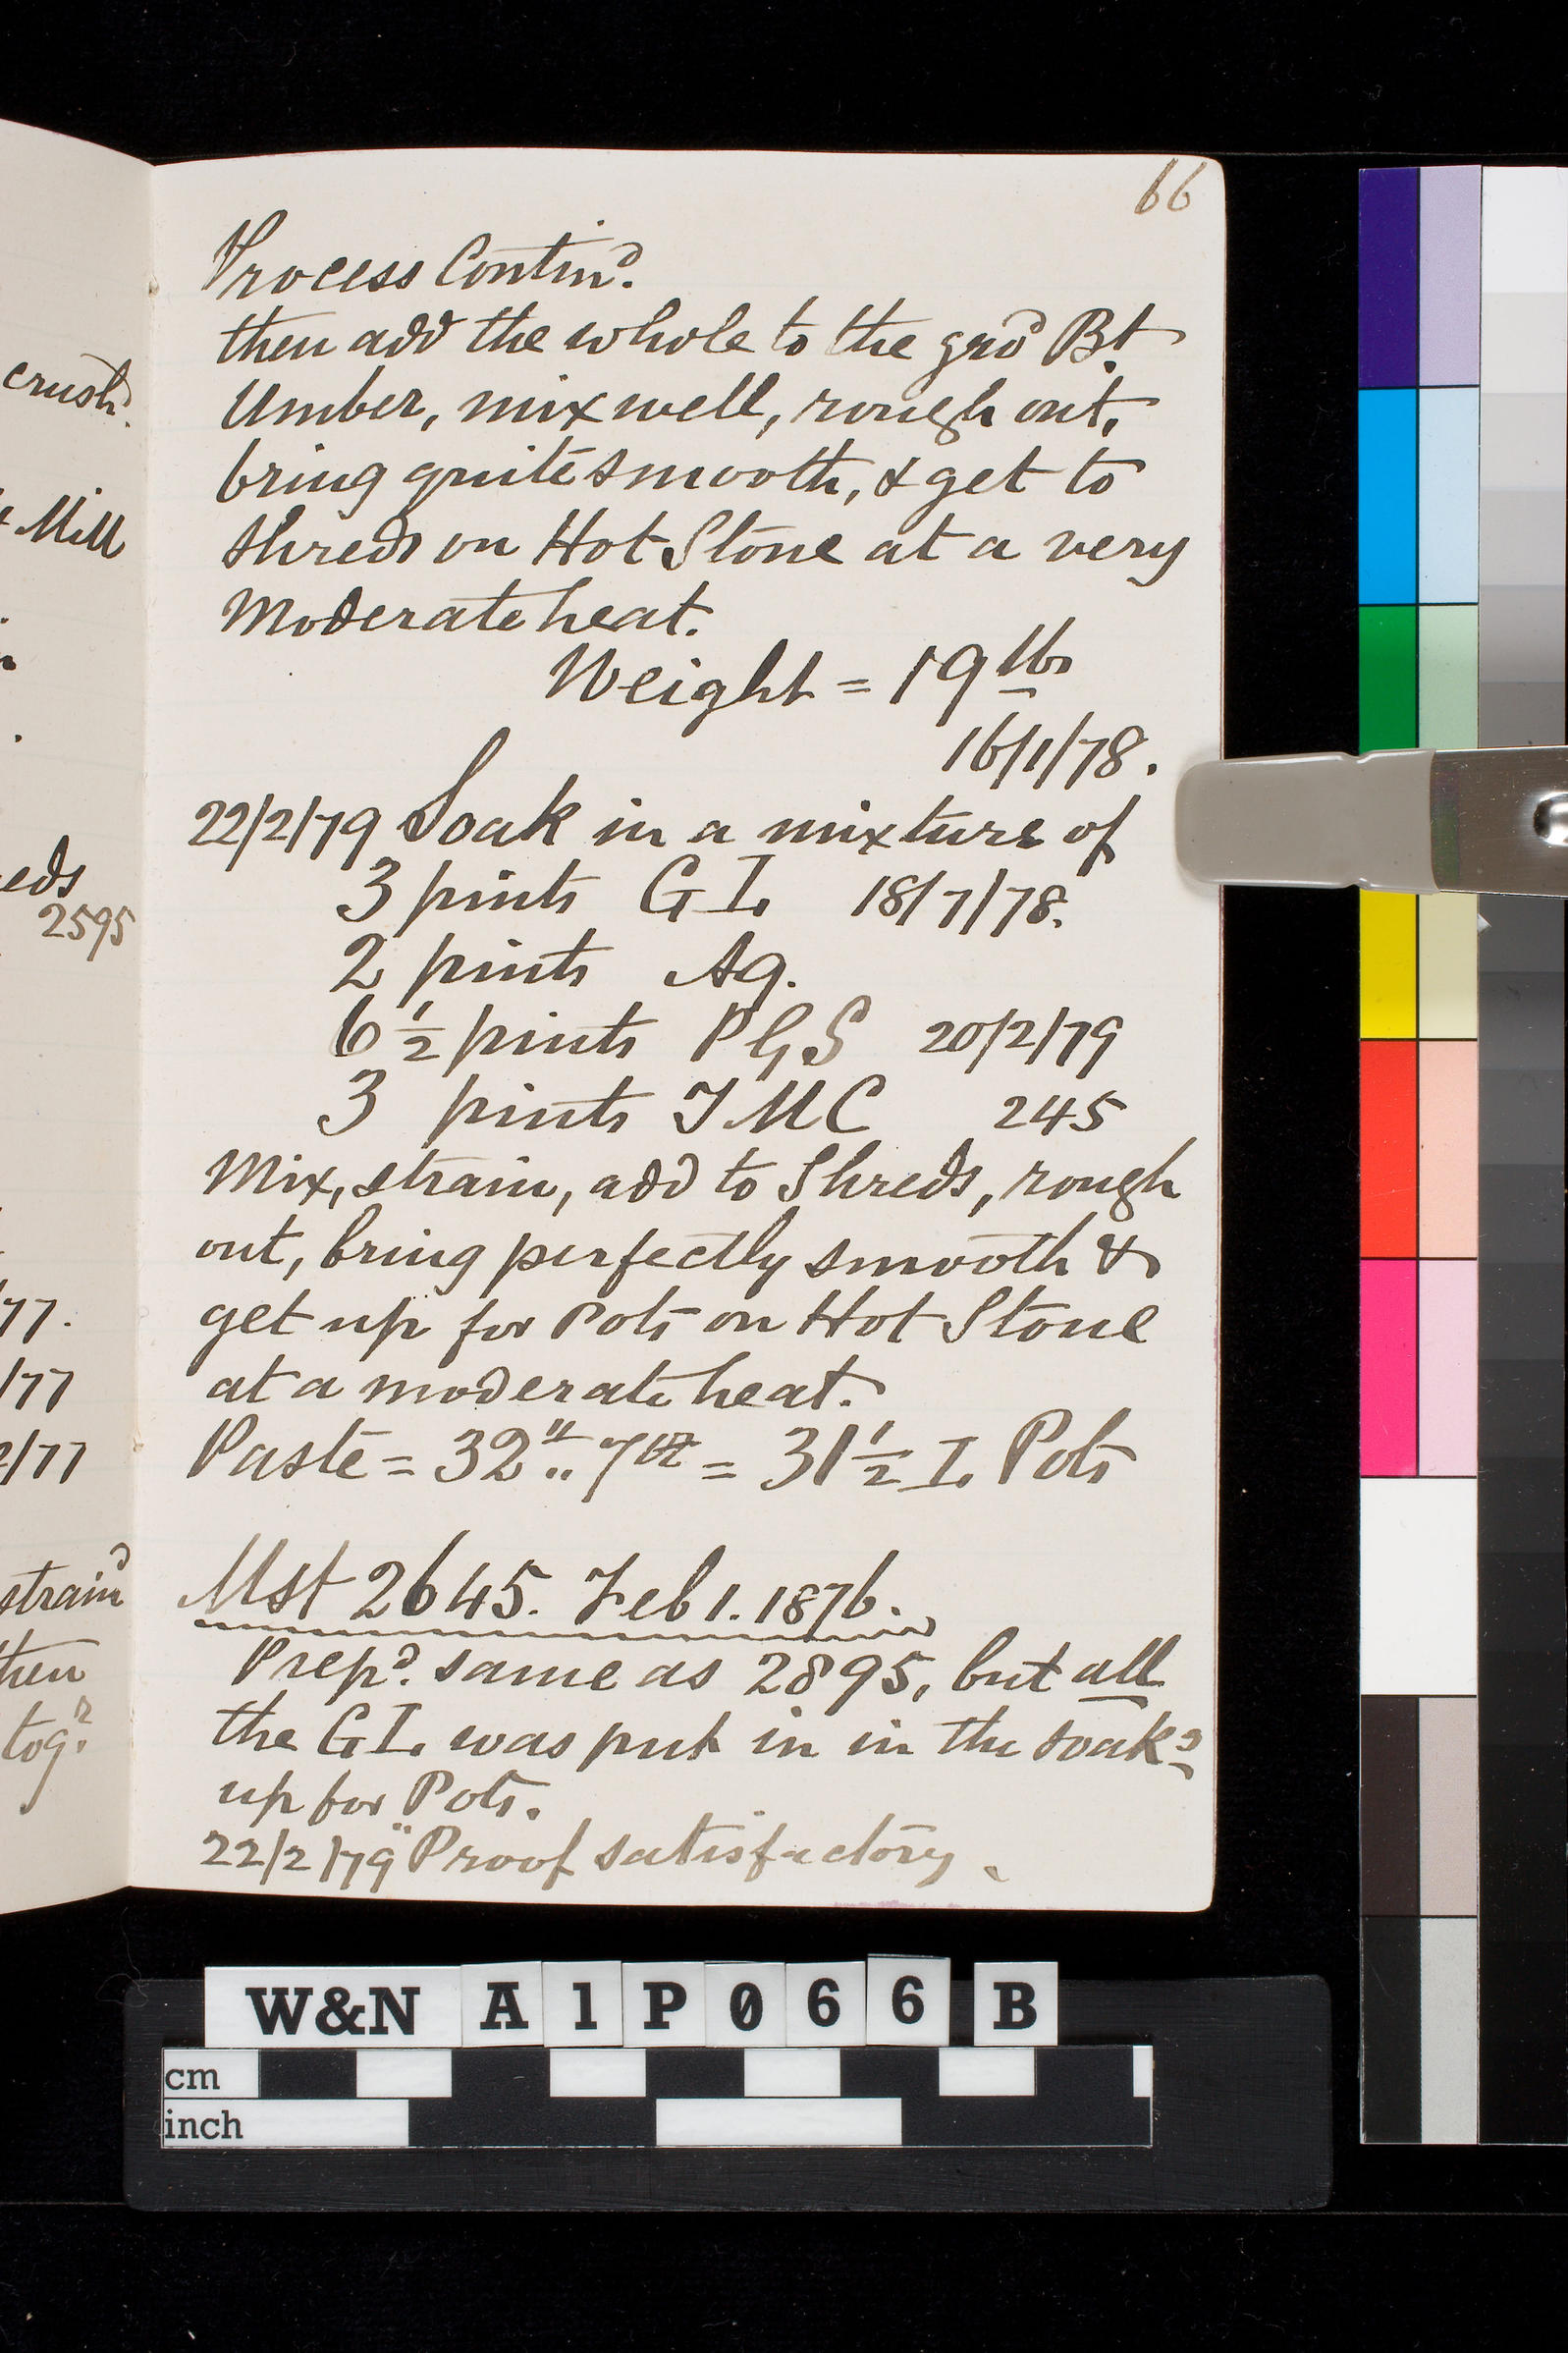 66
Process Contind.
then add the whole to the grd Bt.
Umber, mix well, rough out,
bring quite smooth, & get to
shreds on Hot Stone at a very
moderate heat.
Weight = 19 lbs
16/1/78.
22/2/79 Soak in a mixture of
3 pints G I. 18/7/78.
2 pints Aq.
6 1/2 pints P G S 20/2/79
3 pints T M C 245
Mix, strain, add to Shreds, rough
out, bring perfectly smooth &
get up for Pots on Hot Stone
at a moderate heat.
Paste = 32 lb .. 7 oz = 31 1/2 I. Pots
Mst 2645. Feb 1. 1876.
Prepd. same as 2895, but all
the G I. was put in in the soakg
up for Pots.
22/2/79 Proof satisfactory.
crushd.
Mill
eds
2595
77.
/77
2/77
straind
then
togr.
W&N A1P066 B
cm
inch